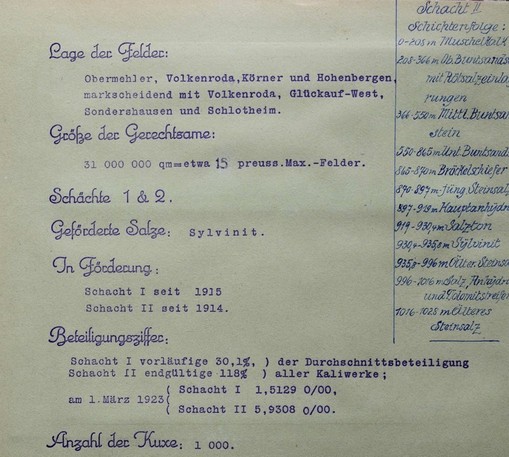 Lage der Felder:
Obermehler, Volkenroda, Körner und Hohenbergen,
markscheidend mit Volkenroda, Glückauf-West,
Sondershausen und Schlotheim.
Größe der Gerechtsame:
31 000 000 qm=etwa 15 preuss.Max.-Felder.
Schächte 1 & 2.
Geförderte Salze: Sylvinit.
In Förderung:
Schacht I seit 1915
Schacht II seit 1914.
Beteiligungsziffer:
Schacht I vorläufige 30,1%, ) der Durchschnittsbeteiligung
Schacht II endgültige 118% ) aller Kaliwerke;
am 1.März 1923 ( Schacht I 1,5129 0/00,
( Schacht II 5,9308 0/00.
Anzahl der Kuxe: 1 000.
Schacht II
Schichtenfolge:
0-208 m Muschelkalk
208-366 m Ob. Buntsands
mit Rötsalzeinlage
rungen
366-550 m Mittl. Buntsand
stein
550-865 m Unt. Buntsands
865-870 m Bröckelschiefer
870-897 m Jüng. Steinsalz
897-919 m Hauptanhydri
919-930,4 m Salzton
930,4-935,8 m Sylvinit
935,8-996 m Älter. Steinsa
996-1016 m Salz, Anhydri
und Dolomitstreifen
1016-1025 m Älteres
Steinsalz